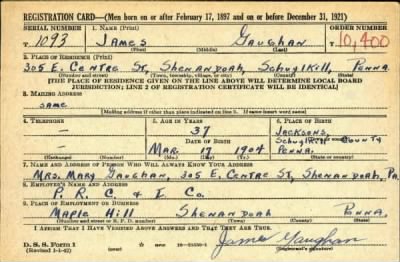 REGISTRATION CARD—(Men born on or after February 17, 1897 and on or before December 31, 1921)
SERIAL NUMBER 1. NAME (Print) ORDER NUMBER
T 1093 JAMES GAUGHAN 10,400
(First) (Middle) (Last)
2. PLACE OF RESIDENCE (Print)
305 E. CENTRE ST, SHENANDOAH, SCHUYLKILL, PENNA.
(Number and street) (Town, township, village, or city) (County) (State)
[THE PLACE OF RESIDENCE GIVEN ON THE LINE ABOVE WILL DETERMINE LOCAL BOARD
JURISDICTION; LINE 2 OF REGISTRATION CERTIFICATE WILL BE IDENTICAL]
3. MAILING ADDRESS
SAME
[Mailing address if other than place indicated on line 2. If same insert word same]
4. TELEPHONE 5. AGE IN YEARS 6. PLACE OF BIRTH
— 37 JACKSONS,
DATE OF BIRTH (Town or county)
SCHUYLKILL COUNTY
— MAR. 17 1904 PENNA.
(Exchange) (Number) (Mo.) (Day) (Yr.) (State or country)
7. NAME AND ADDRESS OF PERSON WHO WILL ALWAYS KNOW YOUR ADDRESS
MRS. MARY GAUGHAN, 305 E. CENTRE ST, SHENANDOAH, PA
8. EMPLOYER'S NAME AND ADDRESS
P. R. C. & I. CO.
9. PLACE OF EMPLOYMENT OR BUSINESS
MAPLE HILL SHENANDOAH PENNA.
(Number and street or R. F. D. number) (Town) (County) (State)
I AFFIRM THAT I HAVE VERIFIED ABOVE ANSWERS AND THAT THEY ARE TRUE.
D. S. S. Form 1
(Revised 1-1-42) (over)
James Gaughan
(Registrant's signature)